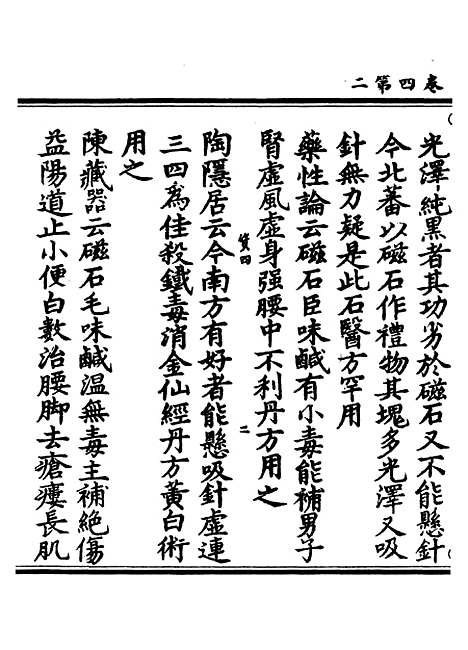 卷四第二
光澤純黑者其功劣於磁石又不能懸針
今北蕃以磁石作禮物其塊多光澤又吸
針無力疑是此石醫方罕用
藥性論云磁石臣味鹹有小毒能補男子
腎虛風虛身强腰中不利丹方用之
貨四
二
陶隱居云今南方有好者能懸吸針虛連
三四爲佳殺鐵毒消金仙經丹方黃白術
用之
陳藏器云磁石毛味鹹温無毒主補絶傷
益陽道止小便白數治腰脚去瘡瘻長肌